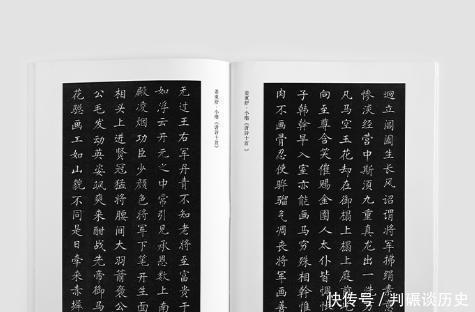 无过王右军丹青不知老将至富贵于
如浮云开元之中常引见承恩数上南
殿凌烟功臣少颜色将军下笔开生面
相头上进贤冠猛将腰间大羽箭褒公
公毛发动英姿飒爽来酣战先帝御马
花骢画工如山貌不同是日牵来赤墀
姜東舒·小楷《唐詩十首》
迥立阊阖生长风诏谓将军拂绢素
惨淡经营中斯须九重真龙出一洗
凡马空玉花却在御榻上榻上庭前
向至尊含笑催赐金圉人太仆皆惆
子韩幹早入室亦能画马穷殊相幹惟
肉不画骨忍使骅骝气凋丧将军画善
姜東舒·小楷《唐詩十首》
快传号／判碾谈历史